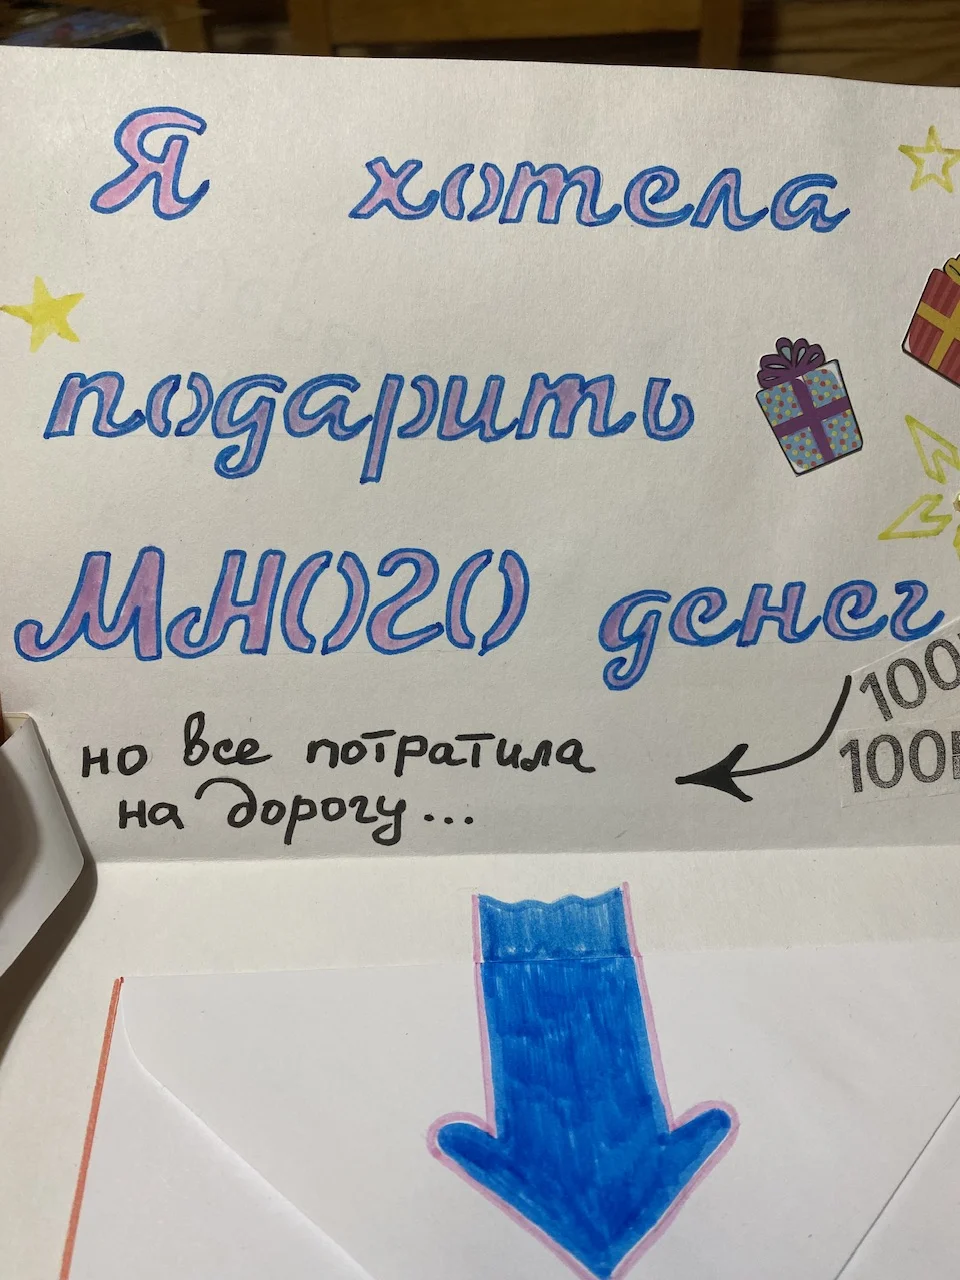 Я хотела
подарить
МНОГО денег
100
100
но все потратила
на дорогу...